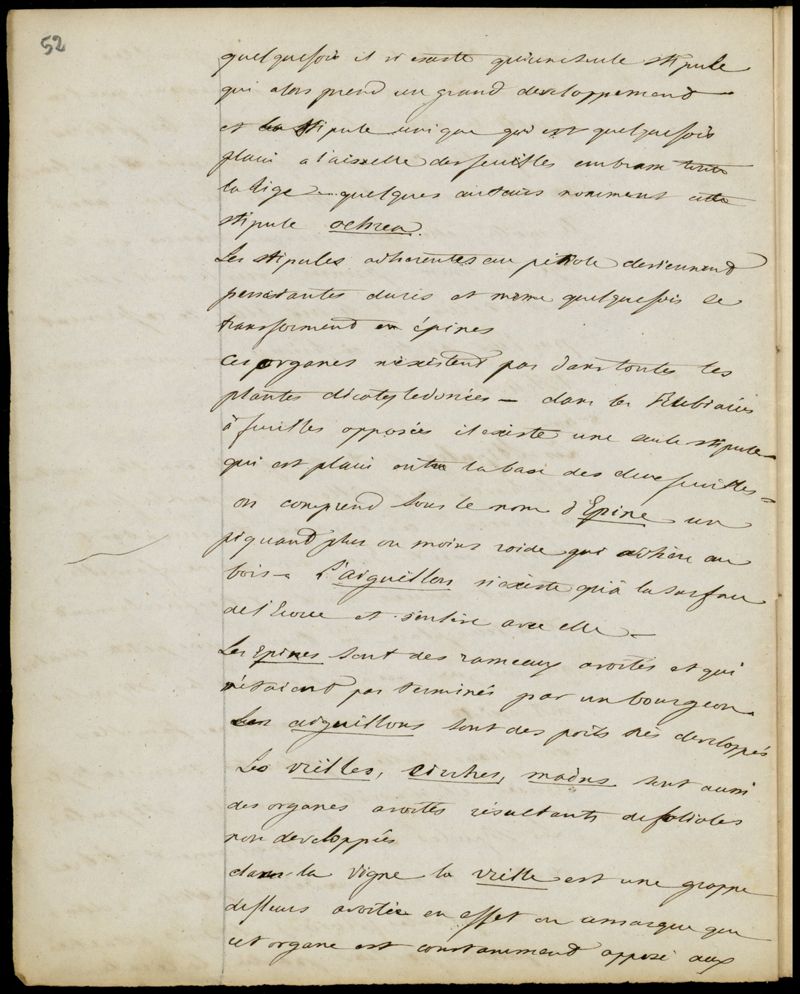 52
quelquefois il n'existe qu'une seule stipule
qui alors prend un grand developpement
et la stipule unique qui est quelquefois
placée a l'aisselle des feuilles embrasse toute
la tige — quelques auteurs nomment cette
stipule ochrea.
Les stipules adherentes au petiole deviennent
persistantes dures et meme quelquefois se
transforment en épines
Ces organes n'existent pas dans toutes les
plantes dicotyledonées — dans les Rubiacées
à feuilles opposées il existe une seule stipule
qui est placée entre la base des deux feuilles —
on comprend sous le nom d'Epine un
piquant plus ou moins roide qui adhère au
bois — L'aiguillon n'existe qu'à la surface
de l'ecorce et s'enlève avec elle —
Les Epines sont des rameaux avortés et qui
n'étaient pas terminés par un bourgeon
Les aiguillons sont des poils très developpés
Les vrilles, cirrhes, mains sont aussi
des organes avortés résultants de folioles
non developpées
dans la vigne la vrille est une grappe
de fleurs avortée en effet on remarque que
cet organe est constamment opposé aux